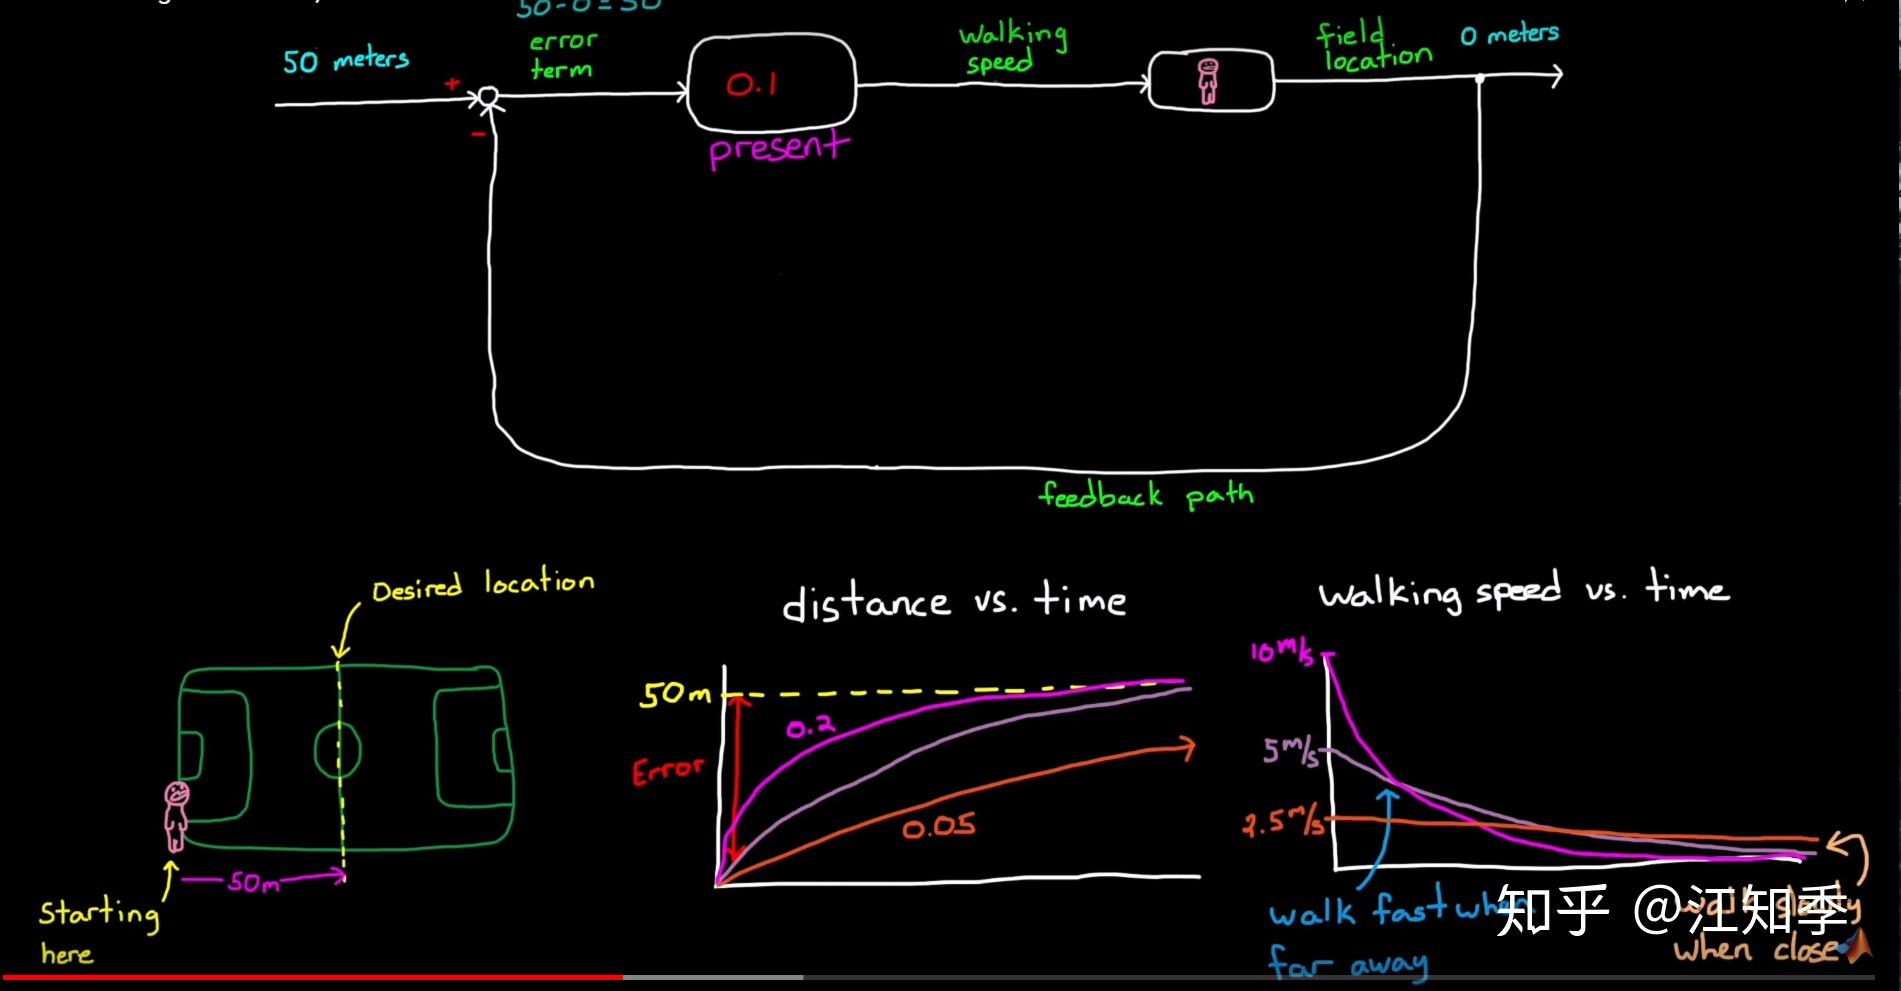 50-0=50
50 meters
error
term
+
-
0.1
present
walking
speed
field
location
0 meters
feedback path
Desired location
50m
Starting
here
distance vs. time
50m
0.2
Error
0.05
walking speed vs. time
10m/s
5m/s
2.5m/s
walk fast when
far away
walk slowly
when close
知乎 @汪知季